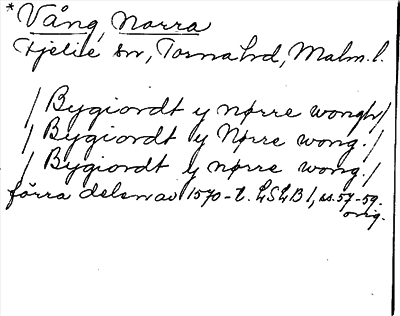 *Vång, Norra
Fjelie sn, Torna hd, Malm. l.
/ Bygiordt y nørre wongh /
/ Bygiordt y Nørre wong. /
/ Bygiordt y nørre wong. /
förra delen av 1570-t. LSLB 1, ss. 57-59.
orig.